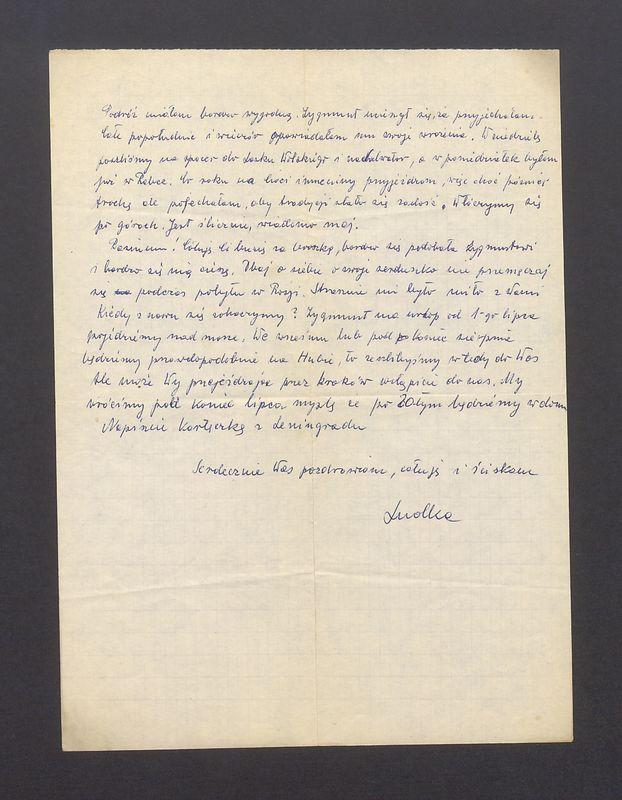 Podróż miałam bardzo wygodną. Zygmunt ucieszył się, że przyjechałam.
Całe popołudnie i wieczór opowiadałam mu swoje wrażenia. W niedzielę
poszliśmy na spacer do Lasku Wolskiego i na Salwator, a w poniedziałek byłam
już w Rabce. Co roku na imieninny przyjeżdżam, więc choć później
trochę ale pojechałam, aby tradycji stało się zadość. Włóczymy się
po górach. Jest ślicznie, wiadomo maj.
! Całuję Cię za broszkę, bardzo się podobała Zygmuntowi
i bardzo się nią cieszę. Dbaj o siebie o swoje serduszko nie przemęczaj
się podczas pobytu w Rosji. Strasznie mi było miło z Wami
Kiedy znowu się zobaczymy? Zygmunt ma urlop od 1-go lipca
pojedziemy nad morze. We wrześniu lub pod połowie sierpnia
będziemy prawdopodobnie na Hubie, to zeszlibyśmy wtedy do Was
Ale może Wy przejeżdżając przez Kraków wstąpicie do nas. My
wrócimy pod koniec lipca myślę że po 20tym będziemy w domu
Napiszcie karteczkę z Leningradu
Serdecznie Was pozdrawiam, całuję i ściskam
Ludka